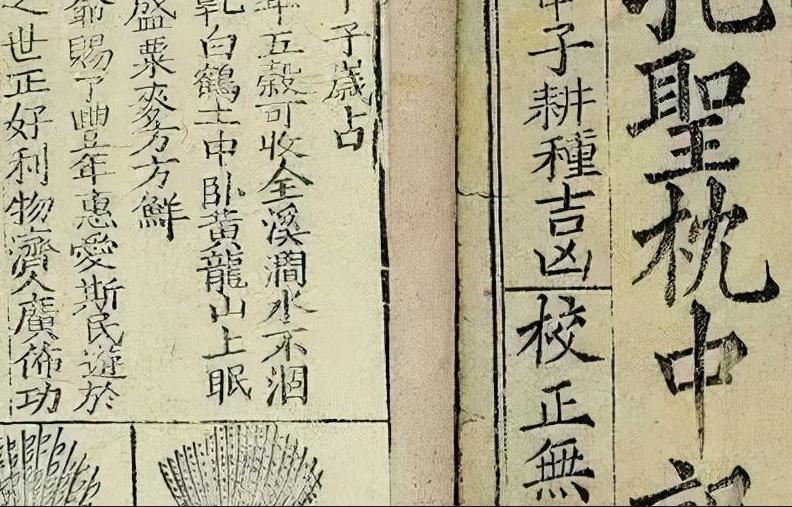 孔聖枕中
子耕種吉凶
校正無
子歲占
年五穀可收全溪澗水不涸
乾白鶴土中臥黃龍山上眠
盛粟麥方方鮮
爺賜了豐年惠愛斯民遊於
之世正好利物濟人廣佈功